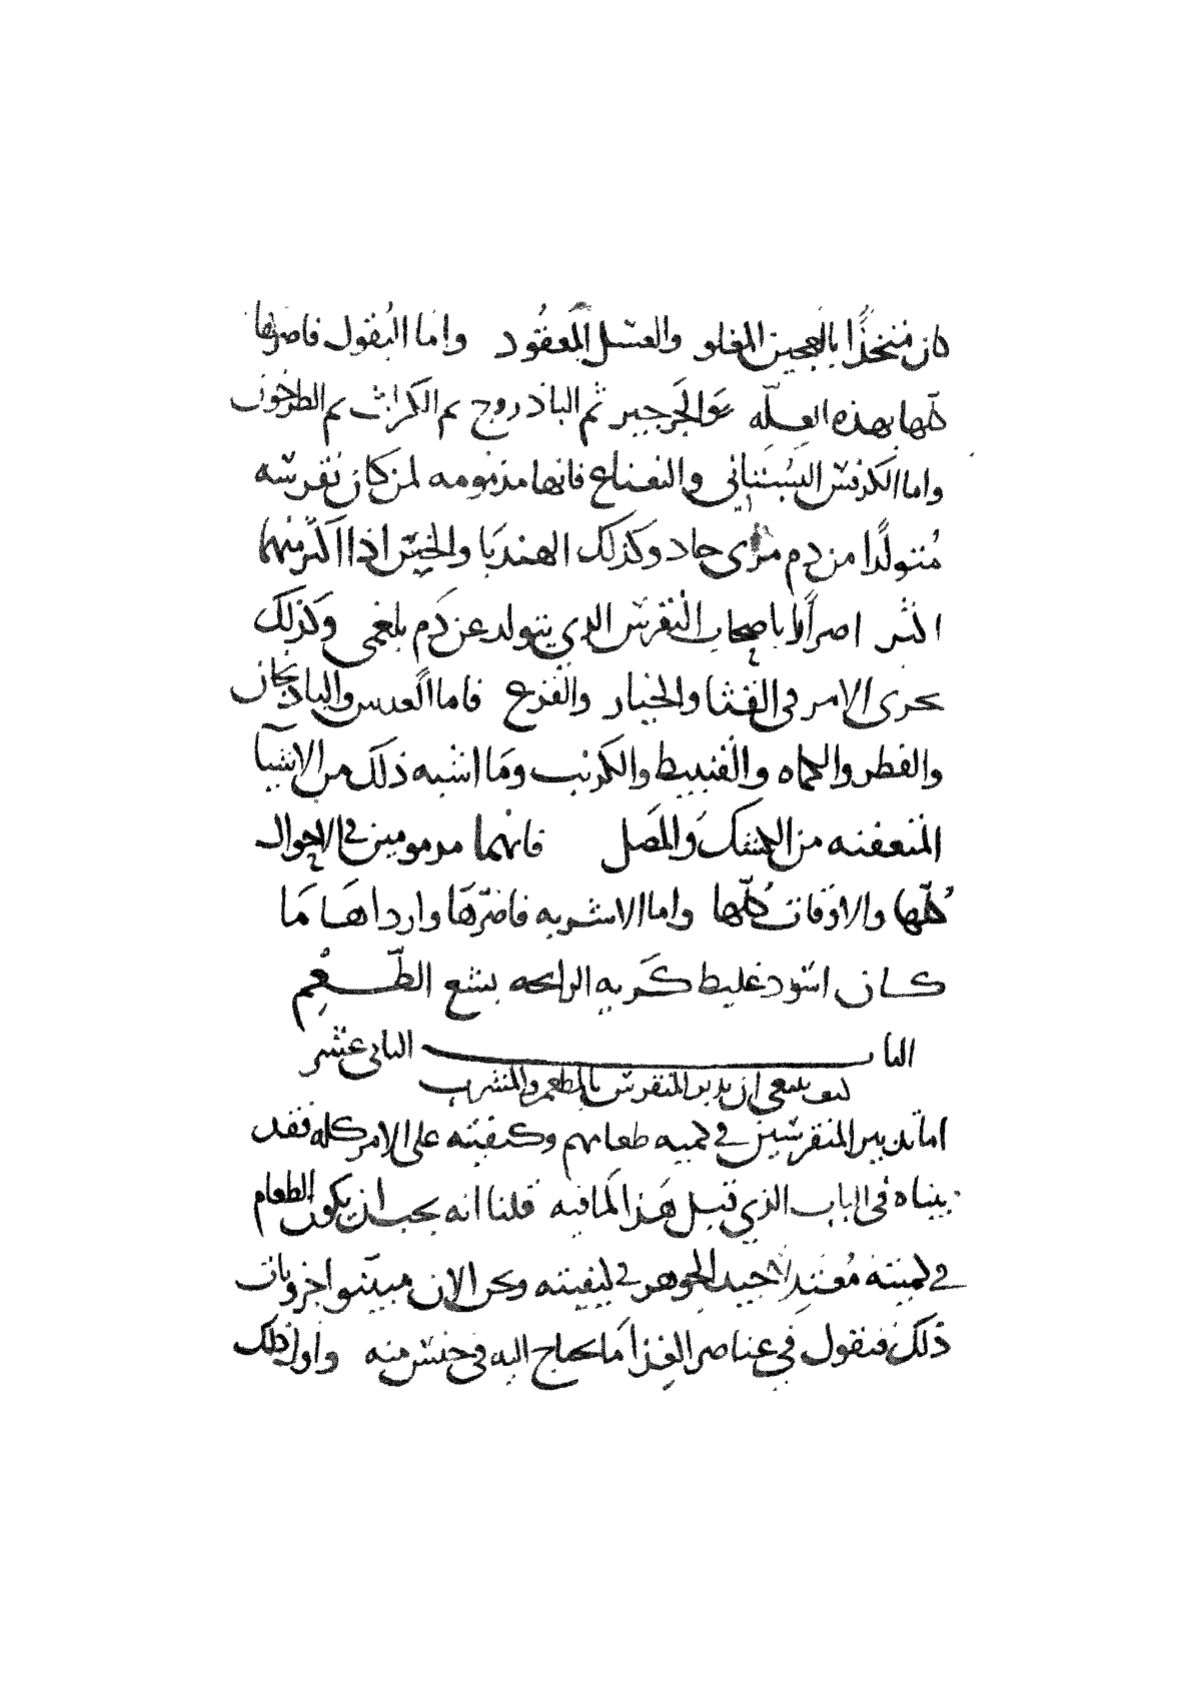 كان مُتخذًا بالعجين المغلو والعسل المعقود واما البُقول فاضرها
كلّها بهذه العلّه هو الجَرجير ثم الباذروج ثم الكراث ثم الطرخون
واما الكرفس البُستَاني والنعناع فانها مذمومه لمن كان نقرسه
مُتولّدًا من دم مرّي حاد وكذلك الهندبا والخس اذا اكثر منهما
اكثر اضرارًا باصحاب النقرس الذي يتولد عن دَم بلغمي وكذلك
يجرى الامر في القثا والخيار والقرع فاما العدس والباذنجان
والفطر والكماه والقنبيط والكرنب ومَا اشبه ذلك من الاشيآ
المتعفنه من الكشك والمَصل فانهما مذمومين في الاحوال
كُلّها والاوقات كُلّها واما الاشربه فاضرّهَا وارداهَا مَا
كان اسَود غليط كَريه الرايحه بشع الطّعْم
البا ب الثاني عشر
كيف ينبغي ان يدبر المنقرس بالمطعم والمشرب
اما تدبير المنقرسين في كميه طعامهم وكيفيته على الامر كله فقد
بيناه في الباب الذي قبل هَذا لمَا فيه قلنا انه يجب ان يكون الطعام
في كميته مُعْتدِلا جيد الجوهر في كيفيته ونحن الان مبيّنوا جزويات
ذلك فنقول في عناصر الغِذا مَا يحتاج اليه في جنس منه واول ذلك